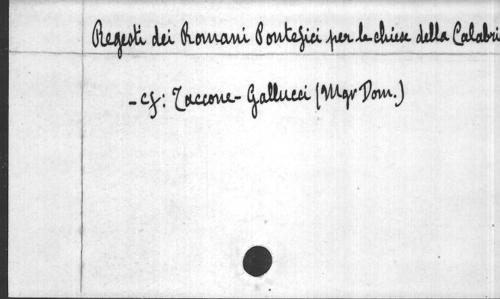 Regesti dei Romani Pontefici per le chiese della Calabri
- cf: Taccone-Gallucci (Mgr Dom.)